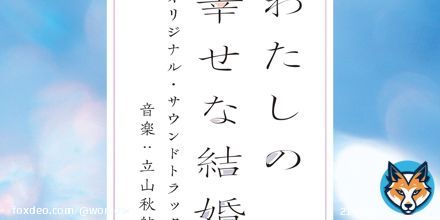 わたしの
幸せな結婚
オリジナル・サウンドトラック
音楽：立山秋
foxdeo.com @wor